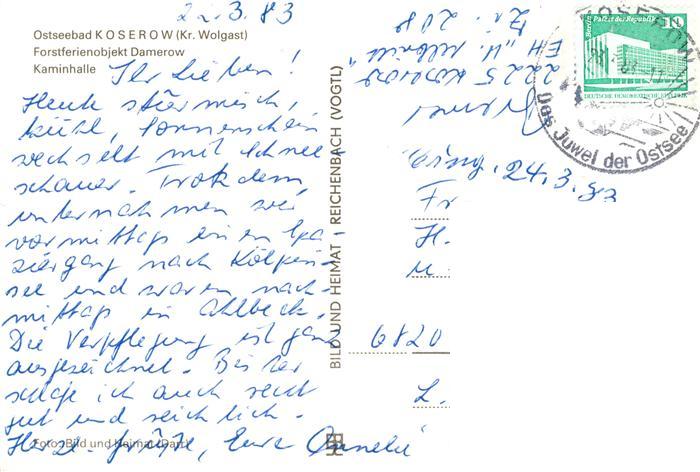 22.3.83
Ostseebad KOSEROW (Kr. Wolgast)
Forstferienobjekt Damerow
Kaminhalle
Ihr Lieben!
Heute stürmisch,
kühl, Sonnenschein
wechselt mit Schnee
schauer. Trotzdem,
unternahmen wir
vormittags einen Spa-
ziergang nach Kölpin-
see und waren nach-
mittags in Ahlbeck.
Die Verpflegung ist ganz
ausgezeichnet. Bisher
schlafe ich auch recht
gut und reichlich.
Herzl. Grüße, Eure
Foto: Bild und Heimat
BILD UND HEIMAT REICHENBACH (VOGTL)
2225 Koserow
EH
Zi. 208
24.3.83
Fr
H.
u.
6820
L.
Berlin Palast der Republik 10
DEUTSCHE DEMOKRATISCHE REPUBLIK
KOSEROW
Das Juwel der Ostsee